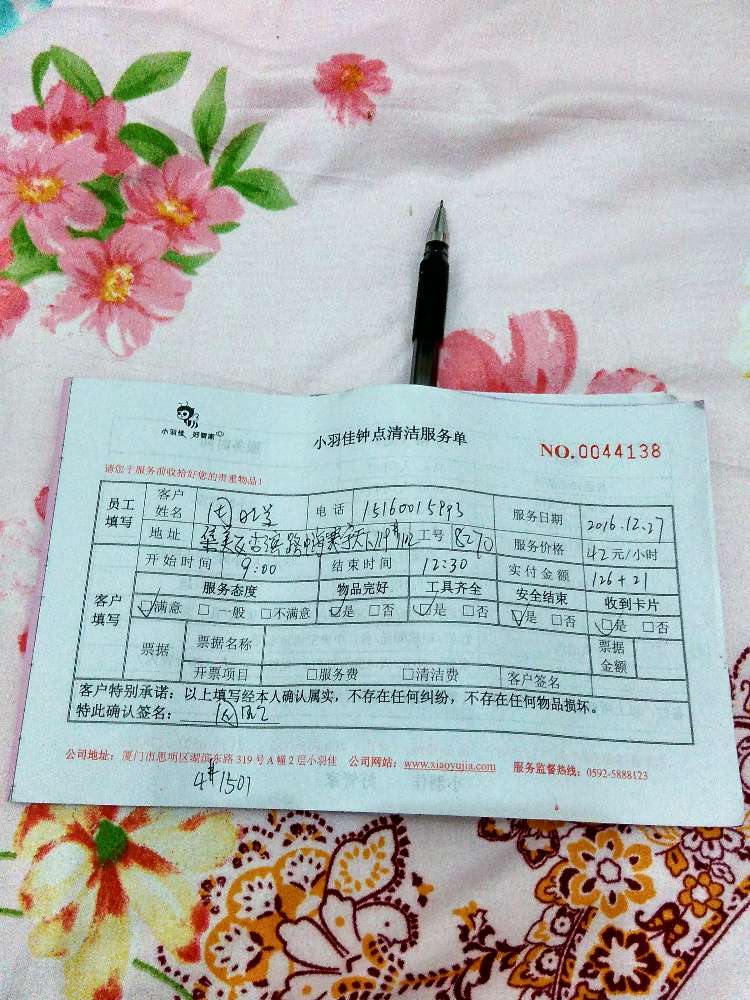 小羽佳 好管家
小羽佳钟点清洁服务单
NO.0044138
请您于服务前收拾好您的贵重物品!
员工填写 客户姓名 电话 15160015993 服务日期 2016.12.27
地址 集美区杏滨路 工号 8270 服务价格 42元/小时
客户填写 开始时间 9:00 结束时间 12:30 实付金额 126+21
服务态度 物品完好 工具齐全 安全结束 收到卡片
☑满意 □一般 □不满意 ☑是 □否 ☑是 □否 ☑是 □否 ☑是 □否
票据 票据名称 票据金额
开票项目 □服务费 □清洁费 客户签名
客户特别承诺:以上填写经本人确认属实,不存在任何纠纷,不存在任何物品损坏。
特此确认签名:
公司地址:厦门市思明区湖滨东路319号A幢2层小羽佳 公司网站:www.xiaoyujia.com 服务监督热线:0592-5888123
4#1501